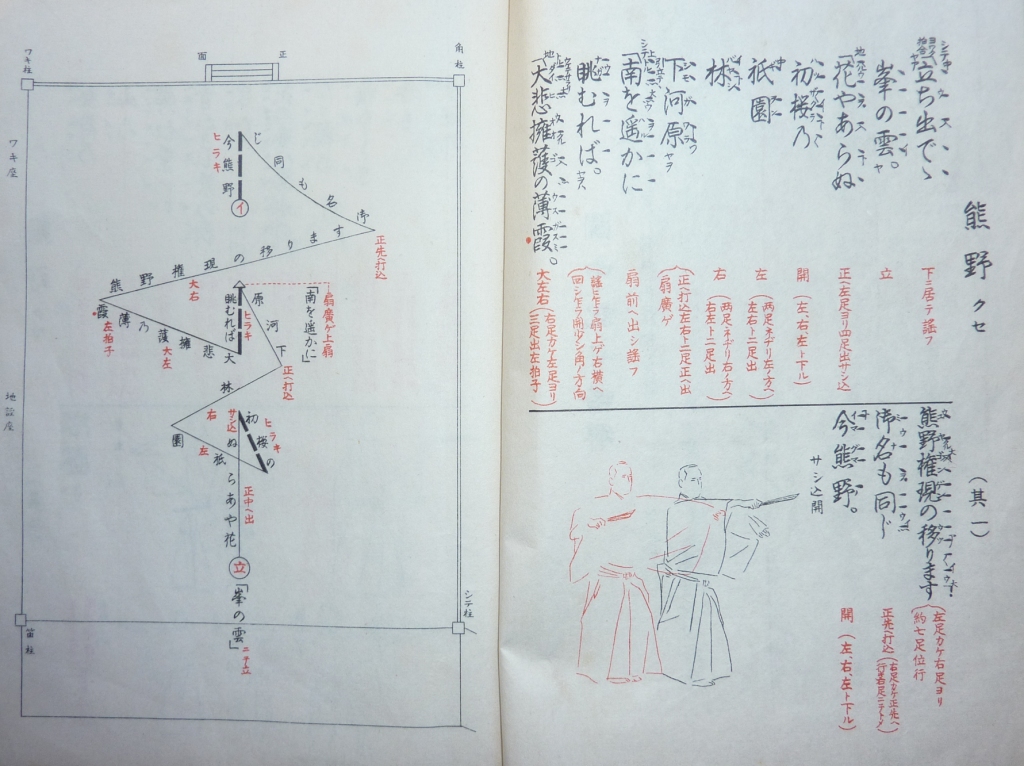 熊野 クセ
(其一)
立ち出でゝ
峯の雲。
花やあらぬ
初桜乃
祇園
林
下河原
南を遥かに
眺むれば。
大悲擁護の薄霞。
下ニ居テ謡フ
立
正(左足ヨリ四足出サシ込
開 (左、右、左ト下ル)
左 (両足ネヂリ左ノ方ヘ
左右ト二足出
右 (両足ネヂリ右ノ方ヘ
右左ト二足出
(正ヘ打込左右ト二足正ヘ出
扇廣ゲ
扇前ヘ出シ謡フ
大左右 (右足カケ左足ヨリ
三足出左拍子)
熊野権現の移ります
御名も同じ
今熊野。
サシ込開
左足カケ右足ヨリ
約七足位行
正先ヘ打込
開 (左、右、左ト下ル)
正
面
角柱
ワキ柱
ワキ座
地謡座
笛柱
シテ柱
今熊野
ヒラキ
イ
御名も同じ
正先ヘ打込
熊野権現の移ります
大右
霞
薄乃護擁悲大
左拍子
大左
眺むれば
ヒラキ
「南を遥かに」
扇廣ゲ上扇
下河原
正ヘ打込
林
右
祇園
左
初桜の
ヒラキ
サシ込
花やあらぬ
正中ヘ出
立
「峯の雲」
ニテ立